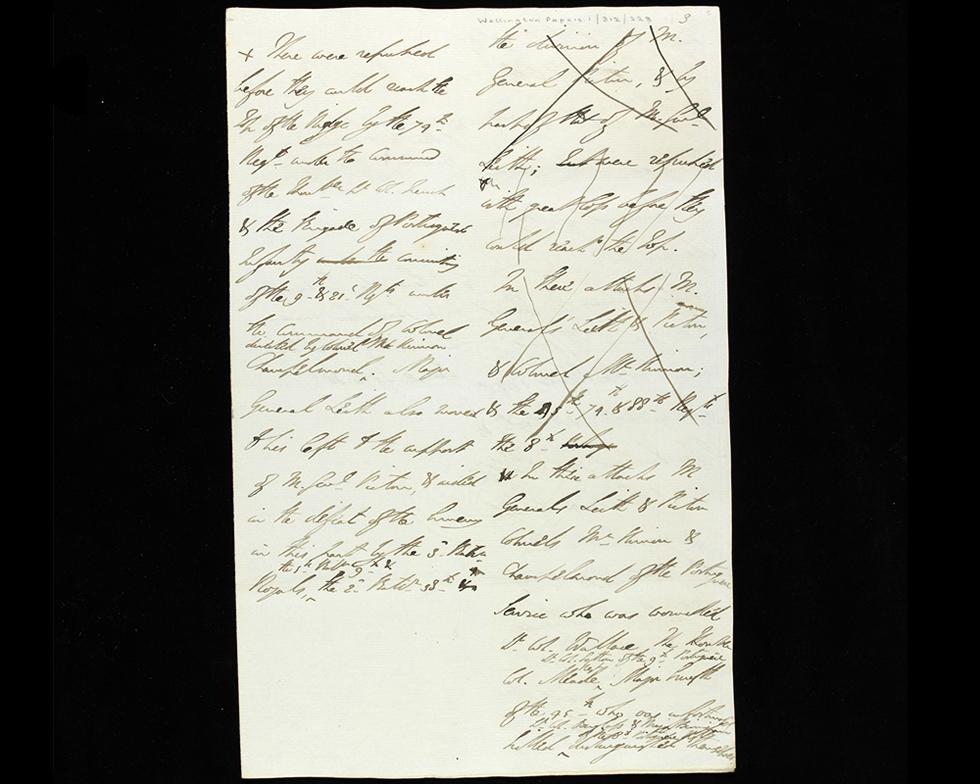 Wellington Papers 1/312/223
3
+ These were repulsed
before they could reach the
top of the Ridge by the 74th
Regt. under the command
of the Honble Lt. Col. Trench
& the Brigade of Portuguese
Infantry under the
of the 9th & 21st Regts under
the command of Colonel
directed by Colonel McKinnon
Champelmond. Major
General Leith also moved
to his left to the support
of M. Genl. Picton, & aided
in the defeat of the Enemy
in this part by the 3d Battn
the 1st Battn 9th &
Royals, the 2d Battn 38th
the division of M.
General Picton, & by
that of M. Genl
Leith; but were repulsed
with great loss before they
could reach the top.
In these attacks M.
Generals Leith & Picton,
& Colonel McKinnon;
& the 45th 74th & 88th Regts
the 8th
In these attacks M
Generals Leith & Picton
Colonels McKinnon &
Champelmond of the Portuguese
Service who was wounded
Lt. Col. Wallace, The Honble
Lt. Col. Sutton of the 9th Portuguese
Lt. Col. Meade, Major Smyth
of the 45th who was unfortunately
Lt. Col. Douglas & Major Birmingham
of the 8th Portuguese Regt
killed distinguished themselves